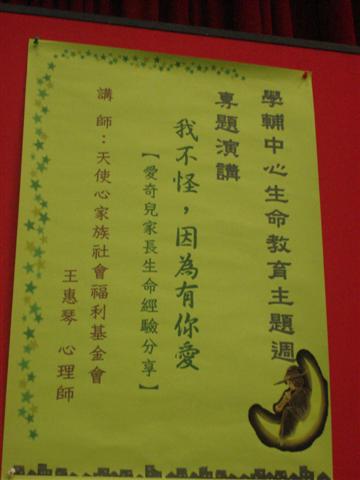 學輔中心生命教育主題週
專題演講
我不怪，因為有你愛
【愛奇兒家長生命經驗分享】
講師：天使心家族社會福利基金會
王惠琴 心理師